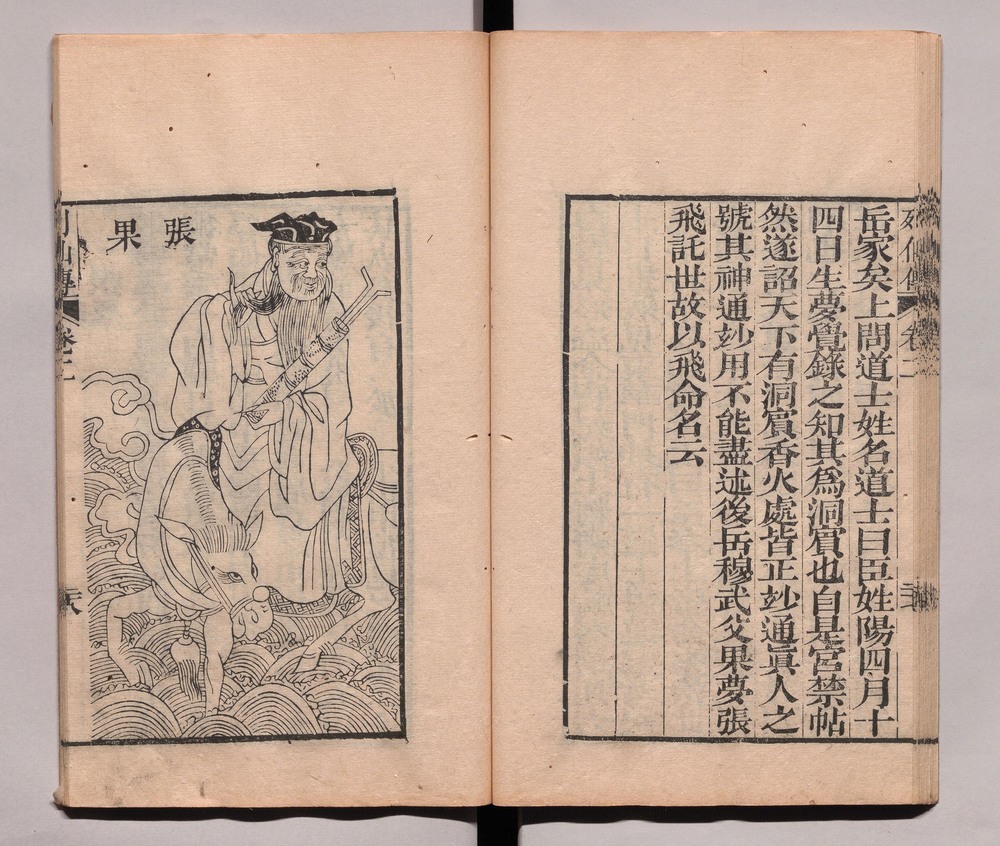 岳家矣上問道士姓名道士曰臣姓陽四月十
四日生夢覺錄之知其爲洞賔也自是宮禁帖
然遂詔天下有洞賔香火處皆正妙通眞人之
號其神通妙用不能盡述後岳穆武父果夢張
飛託世故以飛命名云
張果
卷二